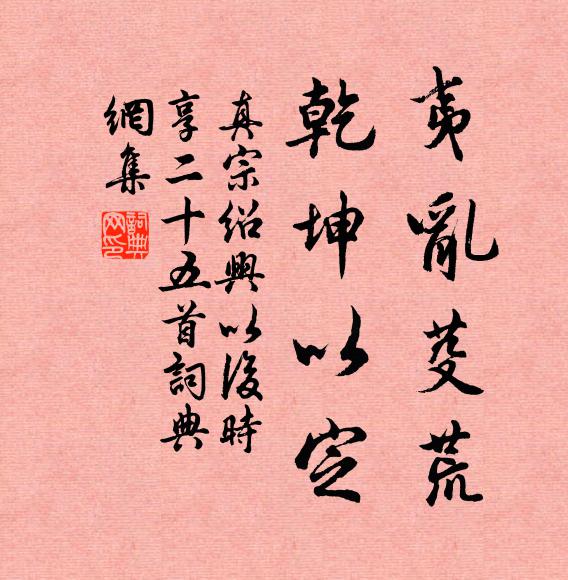 夷亂芟荒
乾坤以定
真宗紹興以後時
享二十五首詞典
網集
詞典網印